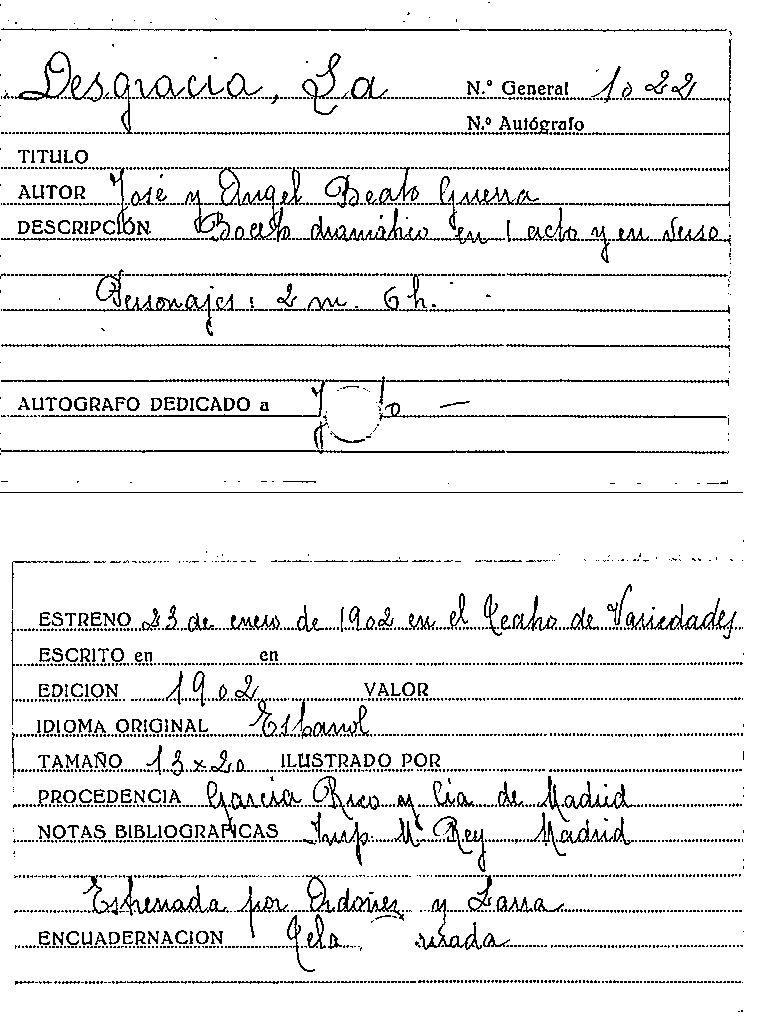 Desgracia, La N.º General 1022
N.º Autógrafo
TITULO
AUTOR José y Angel Beato Guerra
DESCRIPCIÓN Boceto dramático en 1 acto y en verso
Personajes: 2 m. 6 h.
AUTOGRAFO DEDICADO a
ESTRENO 23 de enero de 1902 en el Teatro de Variedades
ESCRITO en en
EDICION 1902 VALOR
IDIOMA ORIGINAL Español
TAMAÑO 13x20 ILUSTRADO POR
PROCEDENCIA García Rico y Cía de Madrid
NOTAS BIBLIOGRAFICAS Imp Mº Rey Madrid
Estrenada por Ordoñez y Lara
ENCUADERNACION Tela rizada